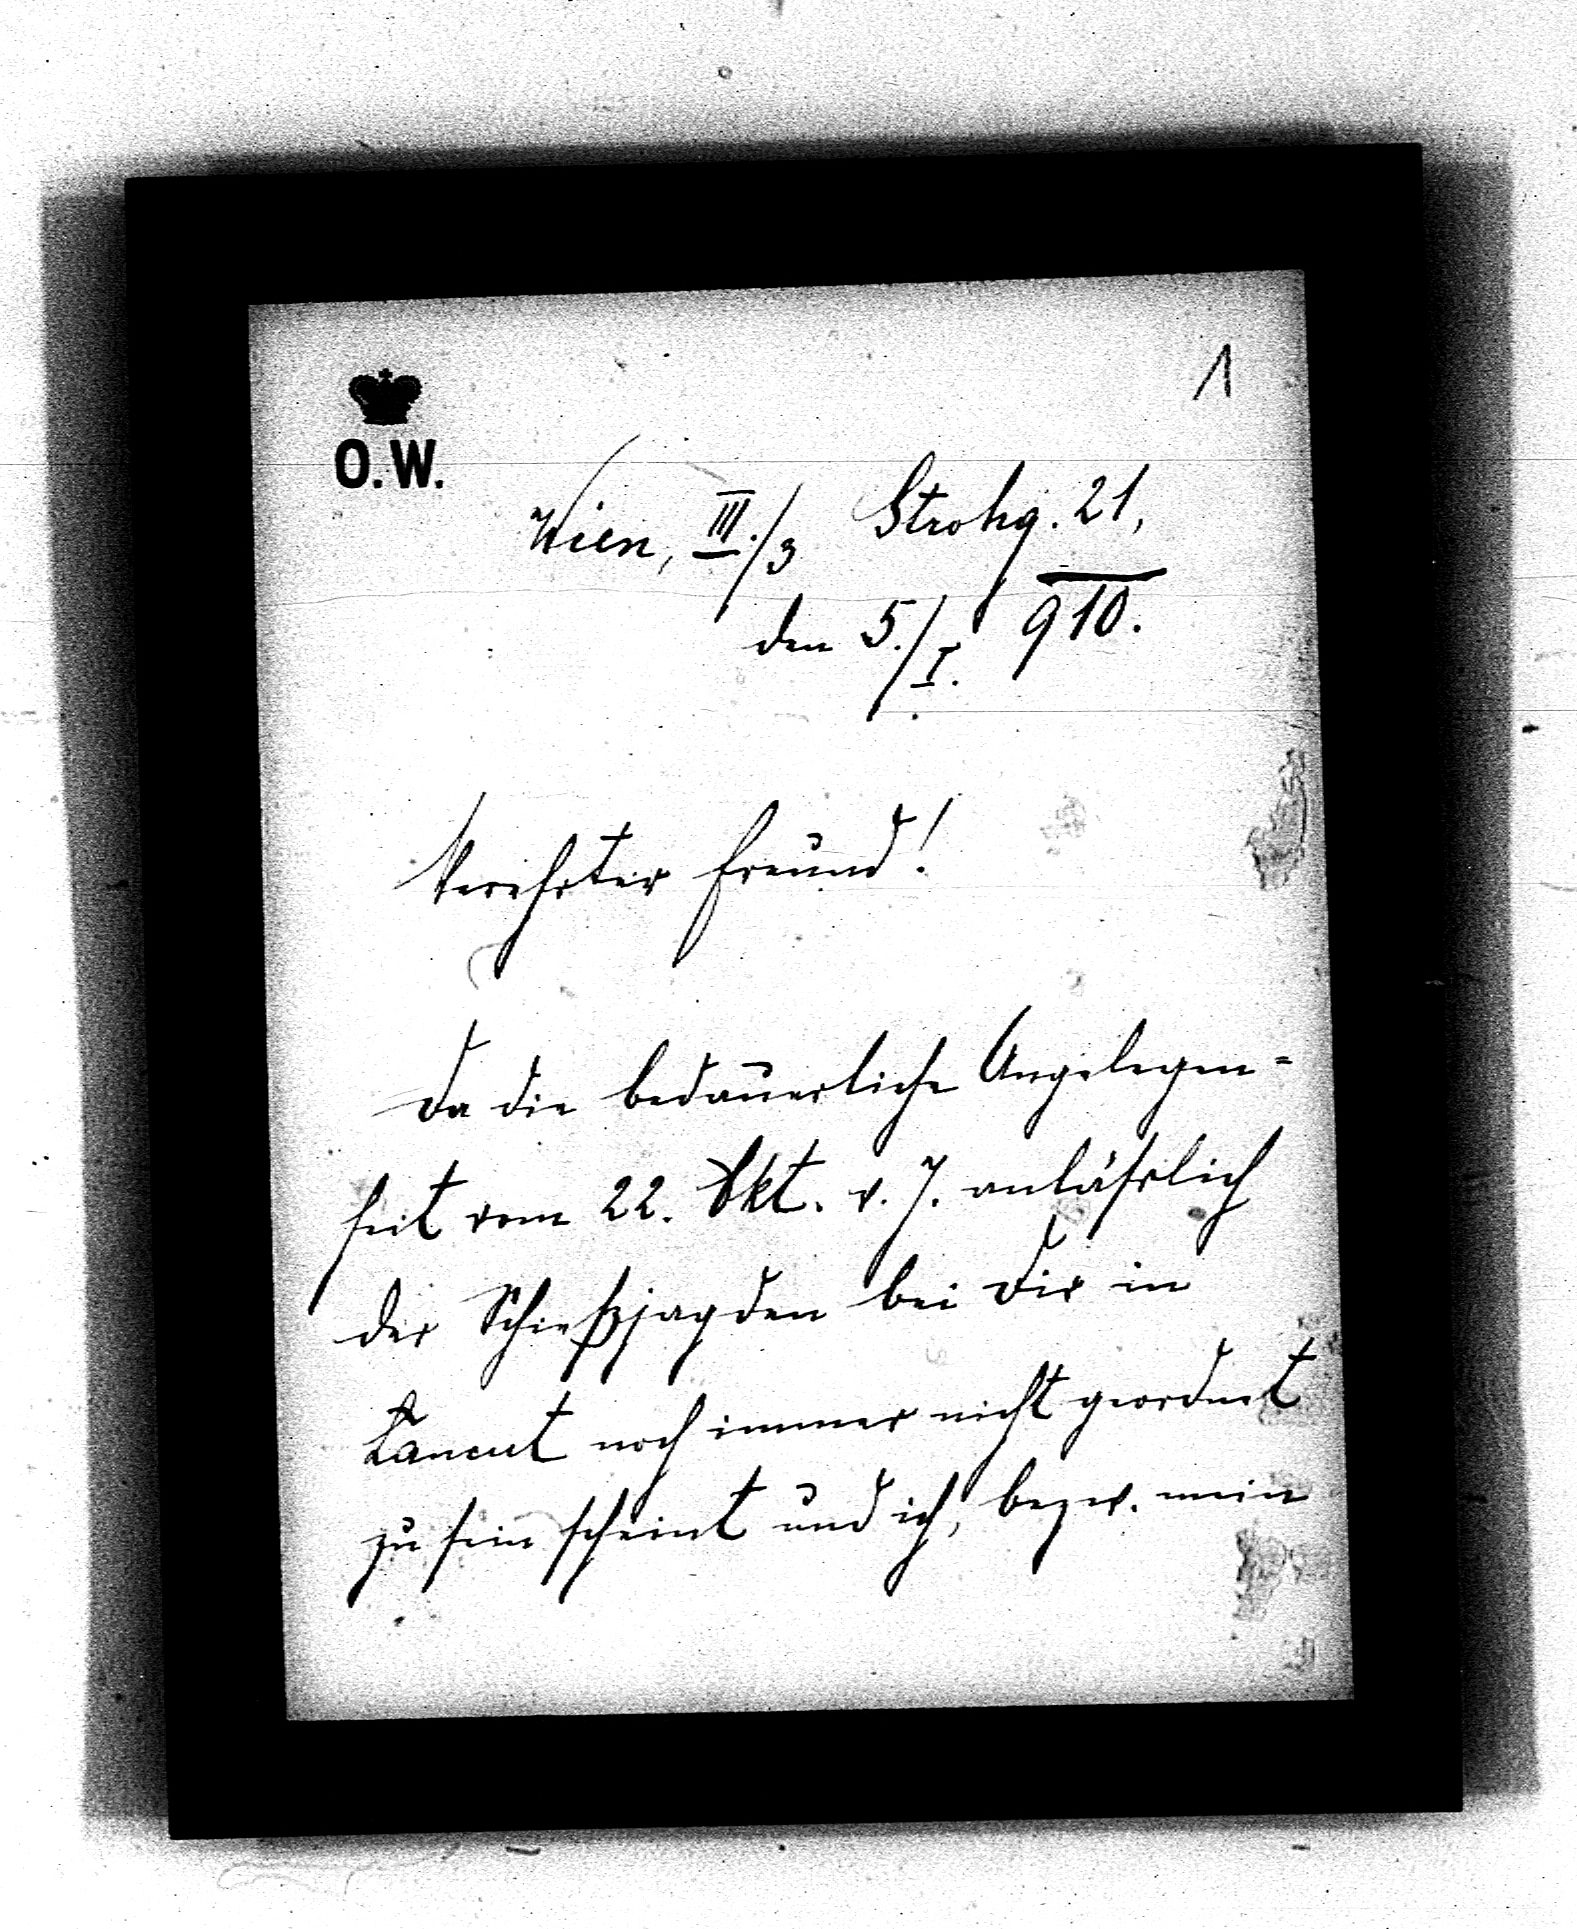 1
O.W.
Wien, III./3 Strohg. 21,
den 5./I. 910.
Verehrter Freund!
Da die bedauerliche Angelegen=
heit vom 22. Okt. v. J. anläßlich
der Schießjagden bei Dir in
Łancut noch immer nicht geordnet
zu sein scheint und ich, bezw. mein